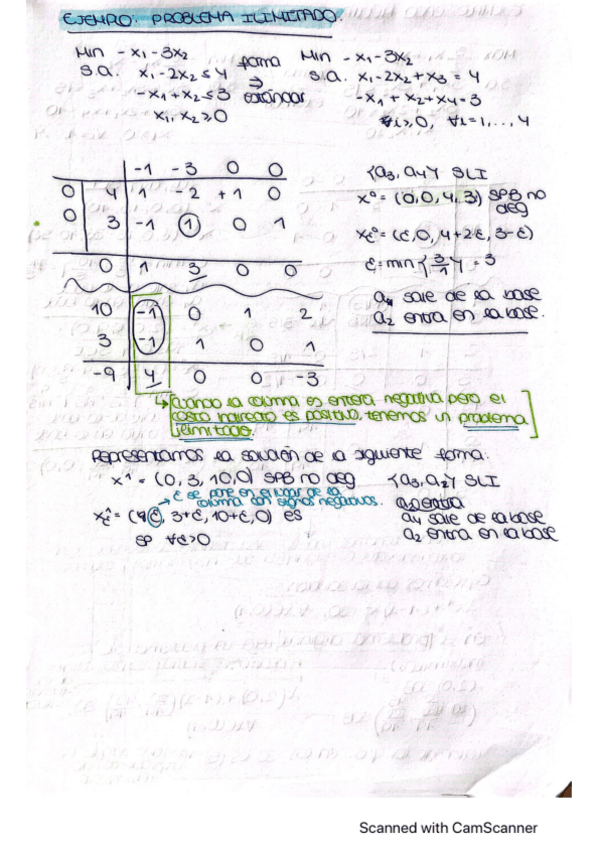 EJEMPLO: PROBLEMA ILIMITADO.
Min -x1-3x2 forma Min -x1-3x2
s.a. x1-2x2≤4 ⇒ s.a. x1-2x2+x3=4
-x1+x2≤3 estándar -x1+x2+x4=3
x1,x2≥0 xi≥0, ∀i=1,...,4
-1 -3 0 0
0 4 1 -2 +1 0
0 3 -1 1 0 1
0 1 3 0 0
10 -1 0 1 2
3 -1 1 0 1
-9 4 0 0 -3
{a3, a4} SLI
x⁰=(0,0,4,3) SPB no deg
xε⁰=(ε,0,4+2ε,3-ε)
ε=min{3/1}=3
a4 sale de la base
a2 entra en la base.
Cuando la columna es entera negativa pero el
costo indirecto es positivo, tenemos un problema
ilimitado.
Representamos la solución de la siguiente forma:
x¹=(0,3,10,0) SPB no deg {a3,a2} SLI
→ ε se pone en el lugar de la
columna con signos negativos.
a2 entra
xε¹=(ε, 3+ε, 10+ε, 0) es
a4 sale de la base
SP ∀ε>0
a2 entra en la base
Scanned with CamScanner